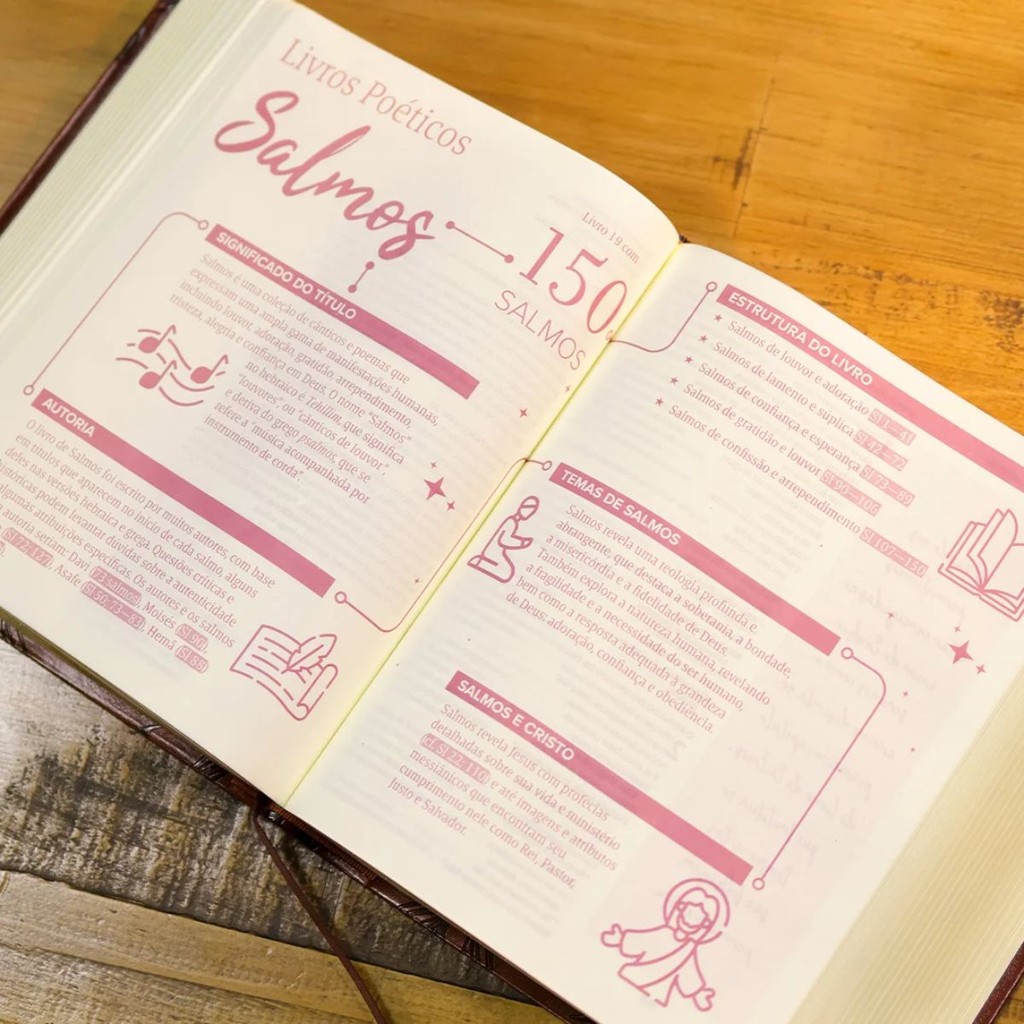 Livros Poéticos
Salmos
Livro 19 com
150
SALMOS
SIGNIFICADO DO TÍTULO
Salmos é uma coleção de cânticos e poemas que
expressam uma ampla gama de manifestações humanas,
incluindo louvor, adoração, gratidão, arrependimento,
tristeza, alegria e confiança em Deus. O nome "Salmos"
no hebraico é Tehillim, que significa
"louvores" ou "cânticos de louvor",
e deriva do grego psalmos, que se
refere a "música acompanhada por
instrumento de corda".
AUTORIA
O livro de Salmos foi escrito por muitos autores, com base
em títulos que aparecem no início de cada salmo, alguns
deles nas versões hebraica e grega. Questões críticas e
históricas podem levantar dúvidas sobre a autenticidade
algumas atribuições específicas. Os autores e os salmos
autoria seriam: Davi (73 salmos), Moisés (Sl 90),
(Sl 72; 127), Asafe (Sl 50; 73—83), Hemã (Sl 88)
ESTRUTURA DO LIVRO
★ Salmos de louvor e adoração Sl 1—41
★ Salmos de lamento e súplica Sl 42—72
★ Salmos de confiança e esperança Sl 73—89
★ Salmos de gratidão e louvor Sl 90—106
★ Salmos de confissão e arrependimento Sl 107—150
TEMAS DE SALMOS
Salmos revela uma teologia profunda e
abrangente, que destaca a soberania, a bondade,
a misericórdia e a fidelidade de Deus.
Também explora a natureza humana, revelando
a fragilidade e a necessidade do ser humano,
bem como a resposta adequada à grandeza
de Deus: adoração, confiança e obediência.
SALMOS E CRISTO
Salmos revela Jesus com profecias
detalhadas sobre sua vida e ministério
(cf. Sl 22; 110) e até imagens e atributos
messiânicos que encontram seu
cumprimento nele como Rei, Pastor,
Justo e Salvador.